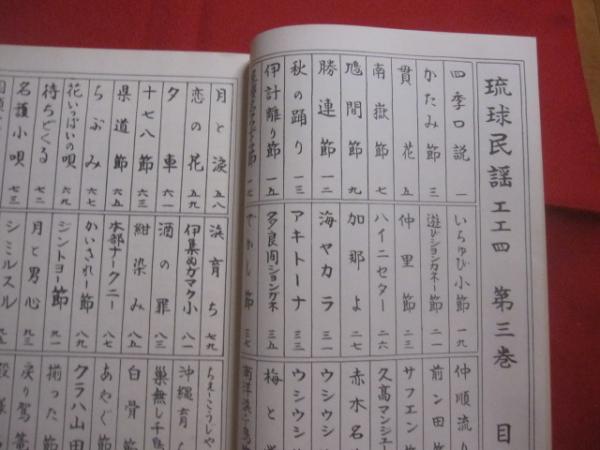 琉球民謡工工四 第三巻 目
四季口説 一
かたみ節 三
貫花 五
南嶽節 七
鳩間節 九
勝連節 一二
秋の踊り 一三
伊計離り節 一五
いちゅび小節 一九
遊びションガネー節 二一
仲里節 二三
ハイニセター 二六
加那よ 二七
海ヤカラ 三一
アキトーナ 三三
多良間ションガネ 三五
でかし節 三七
仲順流り
前ン田節
サフエン節
久高マンジュー
赤木名
ウシウシ
ウシウシ
梅と
月と涙 五八
恋の花 五九
夕車 六一
十七八節 六三
県道節 六五
らぶみ 六七
花いっぱいの唄 六九
待ちどくる 七二
名護小唄 七三
浜育ち 七九
伊集ぬガマク小 八一
酒の罪 八三
紺染み 八五
本部ナークニー 八七
かいされー節 八九
ジントーヨー節 九一
月と男心 九三
シミルスル 九五
ちぇーこうしや
沖縄育ち
巣無し千鳥
白骨節
あやぐ節
クラハ山田
揃った節
戻り駕篭